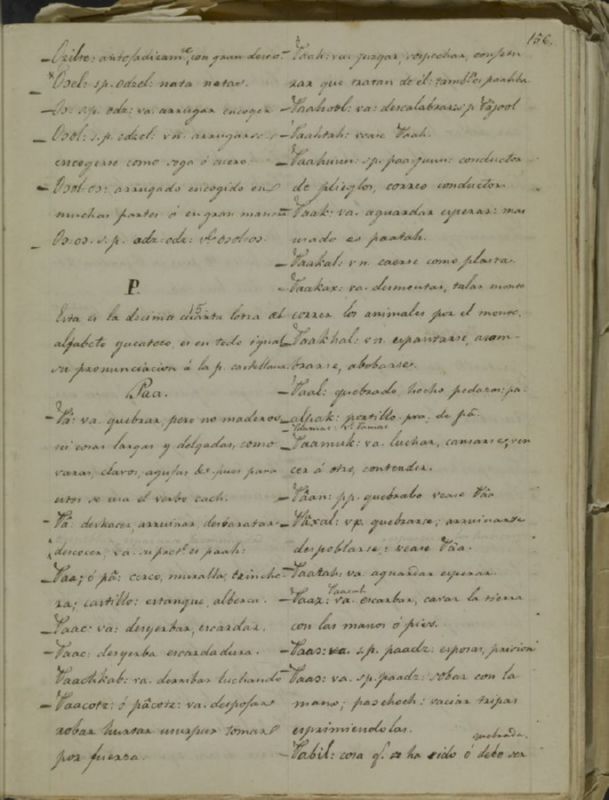 156.
Ozilte: antojadizamte, con gran deseo
Osel: s.p. odzel: nata natas
Os: s.p. odz: va. arrugar encoger
Osol: s.p. odzol: vn. arrugarse
encogerse como soga ó acero.
Osol-os: arrugado encogido en
muchas partes ó en gran manera
Os-os. s.p. odz-odz: osol-os.
P.
Esta es la decima cuarta letra del
15
alfabeto yucateco, es en todo igual
su pronunciacion á la p. castellana
Paa.
Pâ: va. quebrar, pero no maderos
ni cosas largas y delgadas, como
varas, clavos, agujas &. pues para
estos se usa el verbo cach.
Pâ: deshacer, arruinar, desbaratar
descoser, va. su pacto. es paah:
Paa; ó pâ: cerco, muralla, trinche
ra; castillo: estanque, alberca.
Paac: va: desyerbar, escardar.
Paac: desyerba escardadura.
Paachkab: va. derribar luchando
Paacotz: ó pâcotz: va. despojar
robar hurtar usurpar tomar
por fuerza.
Paah: va. juzgar, sospechar, conjetu
rar que tratan de él: tambn. es paahba
Paahool: va: descalabrar s.p. Pâjool
Paahtah: vease Paah.
Paahuun: sp. paajuun: conductor
de pliegos, correo conductor
Paak: va. aguardar esperar: mas
usado es paatah.
Paakal: vn. caerse como plasta.
Paakax: va. desmontar, talar monte
correr los animales por el monte.
Paakhal: vn. espantarse, asom-
brarse, abobarse.
Paal: quebrado, hecho pedazos: pa-
alpak: portillo. pro. de pâ.
Paamuk: va. luchar, cansarse, ven
cer á otro, contender.
Pâan: pp. quebrado vease Pâa
Pâxal: vp. quebrarse, arruinarse
despoblarse: vease Pâa.
Paatah: va. aguardar esperar
Paaz: va. escarbar, cavar la tierra
con las manos ó pies.
Paas: va. s.p. paadz: esposas, prision
Paas: va. sp. paadz: sobar con la
mano; paschoch: vaciar tripas
esprimiendolas.
quebrada.
Pabil: cosa q. se ha sido ó debe ser